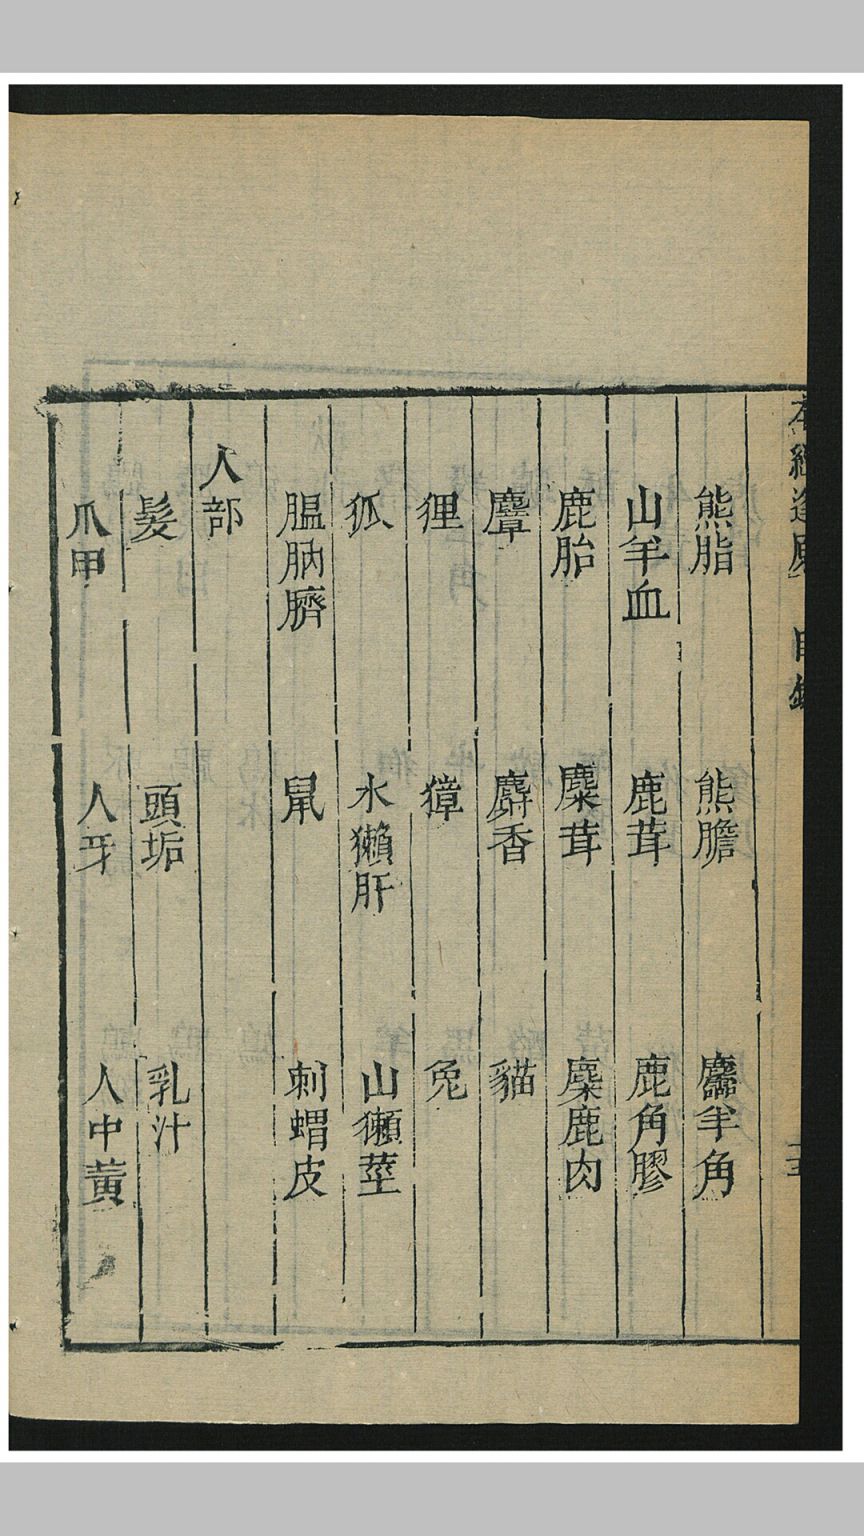 本經逢原 目錄
熊脂 熊膽 麢羊角
山羊血 鹿茸 鹿角膠
鹿胎 麋茸 麋鹿肉
麞 麝香 貓
狸 獐 兔
狐 水獺肝 山獺莖
膃肭臍 鼠 刺蝟皮
人部
髮 頭垢 乳汁
爪甲 人牙 人中黃